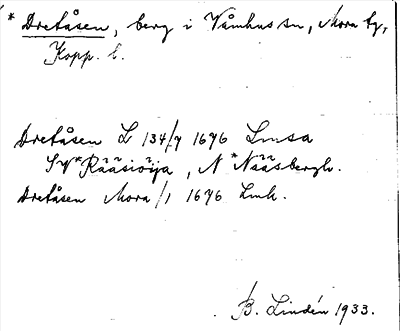 * Dretåsen, berg i Våmhus sn, Mora tg,
Kopp. l.
Dretåsen L 134/7 1676 Lmsa
SV * Rääsiöija, N * Nääsbergh.
Dretåsen Mora/1 1676 Lmk.
B. Lindén 1933.